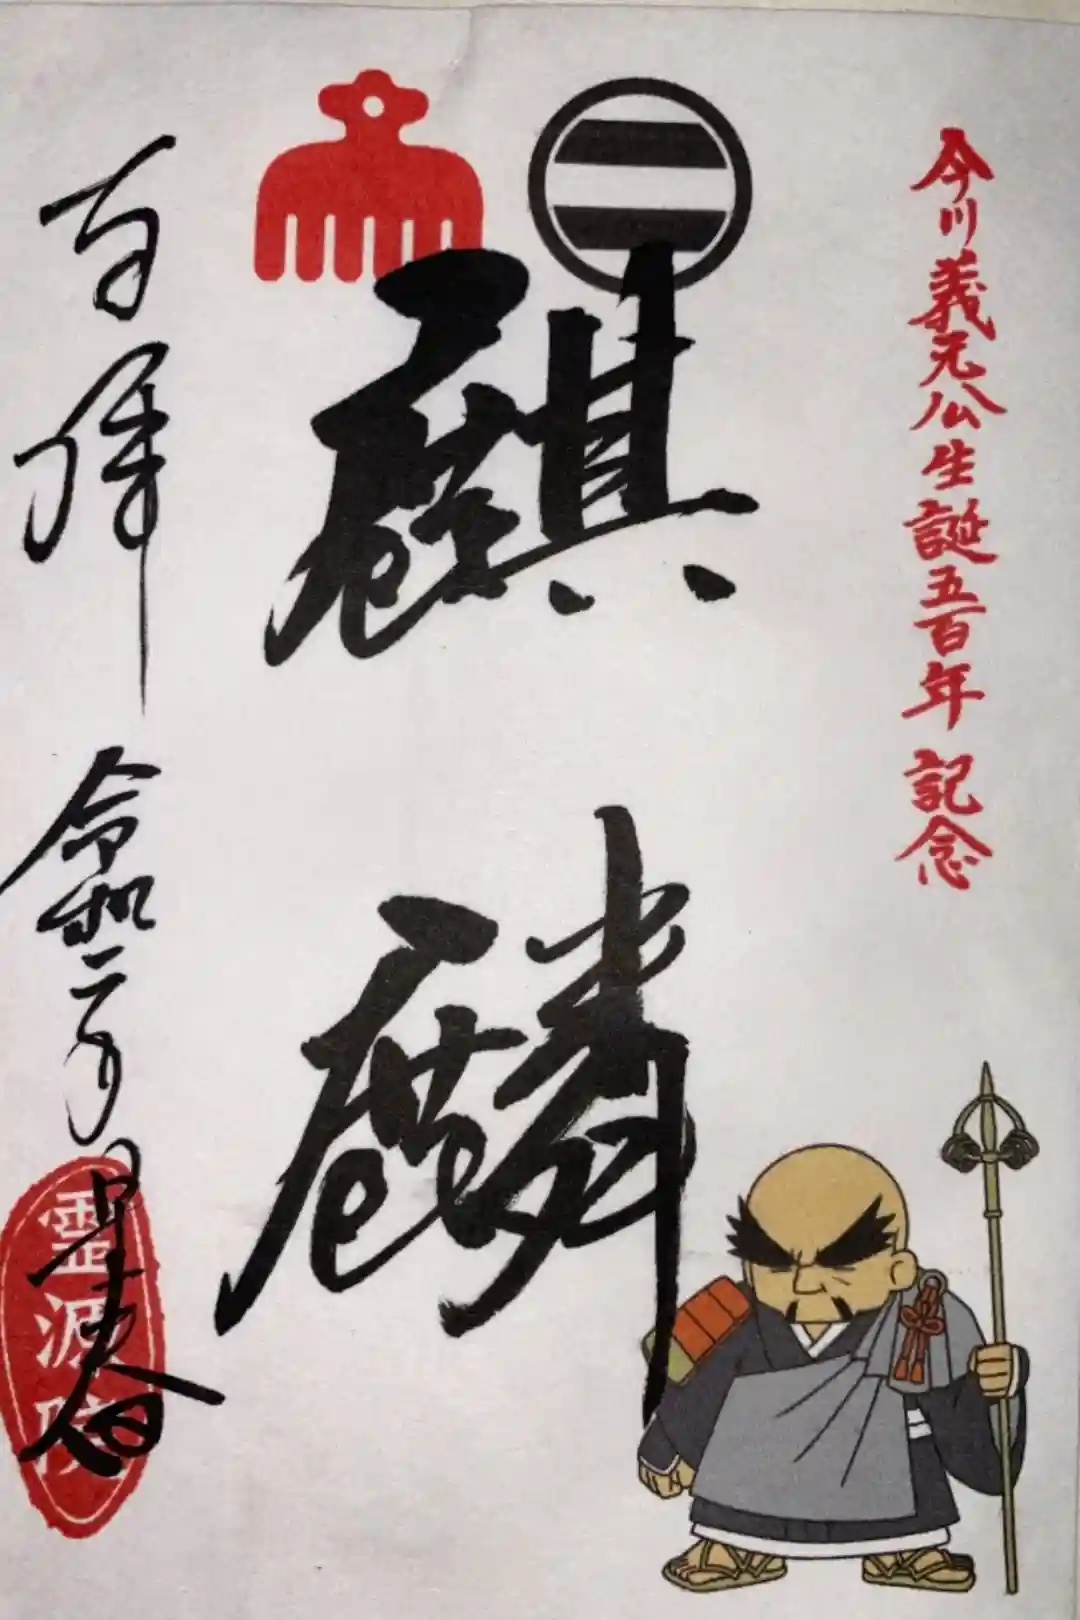 今川義元公生誕五百年 記念
麒麟
奉拝 令和二年 早春
霊源院